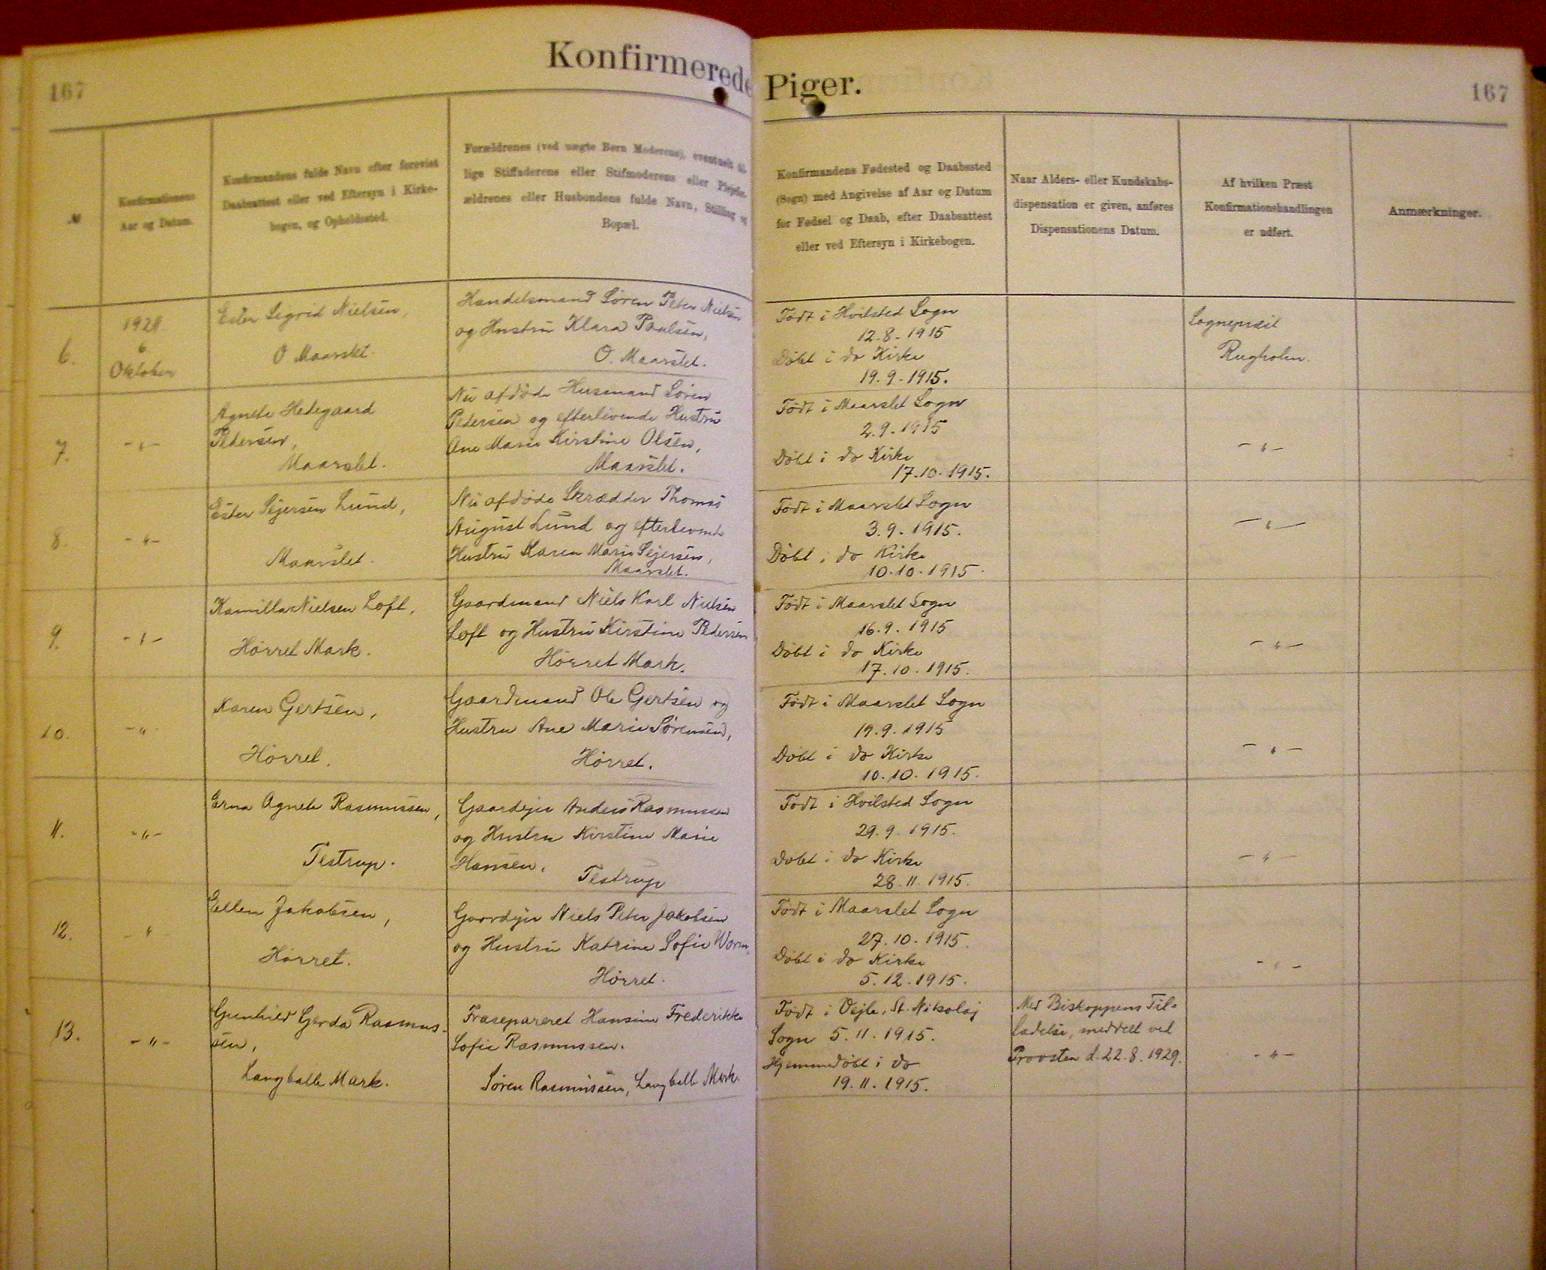 Konfirmerede Piger.
167
167
№
Konfirmationens
Aar og Datum.
Konfirmandens fulde Navn efter forevist
Daabsattest eller ved Eftersyn i Kirke-
bogen, og Opholdssted.
Forældrenes (ved uægte Børn Moderens), eventuelt til-
lige Stiffaderens eller Stifmoderens eller Plejefor-
ældrenes eller Husbondens fulde Navn, Stilling og
Bopæl.
Konfirmandens Fødested og Daabssted
(Sogn) med Angivelse af Aar og Datum
for Fødsel og Daab, efter Daabsattest
eller ved Eftersyn i Kirkebogen.
Naar Alders- eller Kundskabs-
dispensation er given, anføres
Dispensationens Datum.
Af hvilken Præst
Konfirmationshandlingen
er udført.
Anmærkninger.
6.
1929
6
Oktober
Ester Sigrid Nielsen,
O Maarslet.
Handelsmand Søren Peter Nielsen
og Hustru Klara Poulsen,
O. Maarslet.
Født i Hvilsted Sogn
12.8.1915
Døbt i do Kirke
19.9.1915.
Sognepræst
Rugholm.
7.
-"-
Agnete Hedegaard
Pedersen,
Maarslet.
Nu afdøde Husmand Søren
Pedersen og efterlevende Hustru
Ane Marie Kirstine Olsen,
Maarslet.
Født i Maarslet Sogn
2.9.1915
Døbt i do Kirke
17.10.1915.
-"-
8.
-"-
Ester Sejersen Lund,
Maarslet.
Nu afdøde Skrædder Thomas
August Lund og efterlevende
Hustru Karen Marie Sejersen,
Maarslet.
Født i Maarslet Sogn
3.9.1915.
Døbt i do Kirke
10.10.1915.
-"-
9.
-"-
Kamilla Nielsen Loft,
Hørret Mark.
Gaardmand Niels Karl Nielsen
Loft og Hustru Kirstine Pedersen
Hørret Mark.
Født i Maarslet Sogn
16.9.1915
Døbt i do Kirke
17.10.1915.
-"-
10.
-"-
Karen Gertsen,
Hørret.
Gaardmand Ole Gertsen og
Hustru Ane Marie Sørensen,
Hørret.
Født i Maarslet Sogn
19.9.1915
Døbt i do Kirke
10.10.1915.
-"-
11.
-"-
Erna Agnete Rasmussen,
Testrup.
Gaardejer Anders Rasmussen
og Hustru Kirstine Marie
Hansen, Testrup
Født i Hvilsted Sogn
29.9.1915.
Døbt i do Kirke
28.11.1915.
-"-
12.
-"-
Ellen Jakobsen,
Hørret.
Gaardejer Niels Peter Jakobsen
og Hustru Katrine Sofie Worm,
Hørret.
Født i Maarslet Sogn
27.10.1915.
Døbt i do Kirke
5.12.1915.
-"-
13.
-"-
Gunhild Gerda Rasmus-
sen,
Langballe Mark.
Frasepareret Hansine Frederikke
Sofie Rasmussen.
Søren Rasmussen, Langballe Mark.
Født i Vejle, St. Nikolaj
Sogn 5.11.1915.
Hjemmedøbt i do
19.11.1915.
Med Biskoppens Til-
ladelse, meddelt ved
Provsten d. 22.8.1929.
-"-